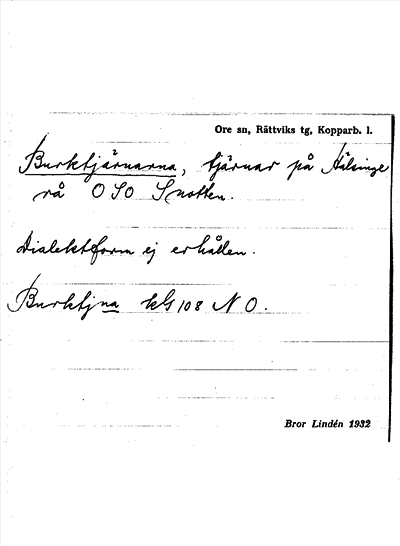 Ore sn, Rättviks tg, Kopparb. l.
Burktjärnarna, tjärnar på Hälsinge
rå OSO Snotten.
Dialektform ej erhållen.
Burktjna kG 108 NO.
Bror Lindén 1932